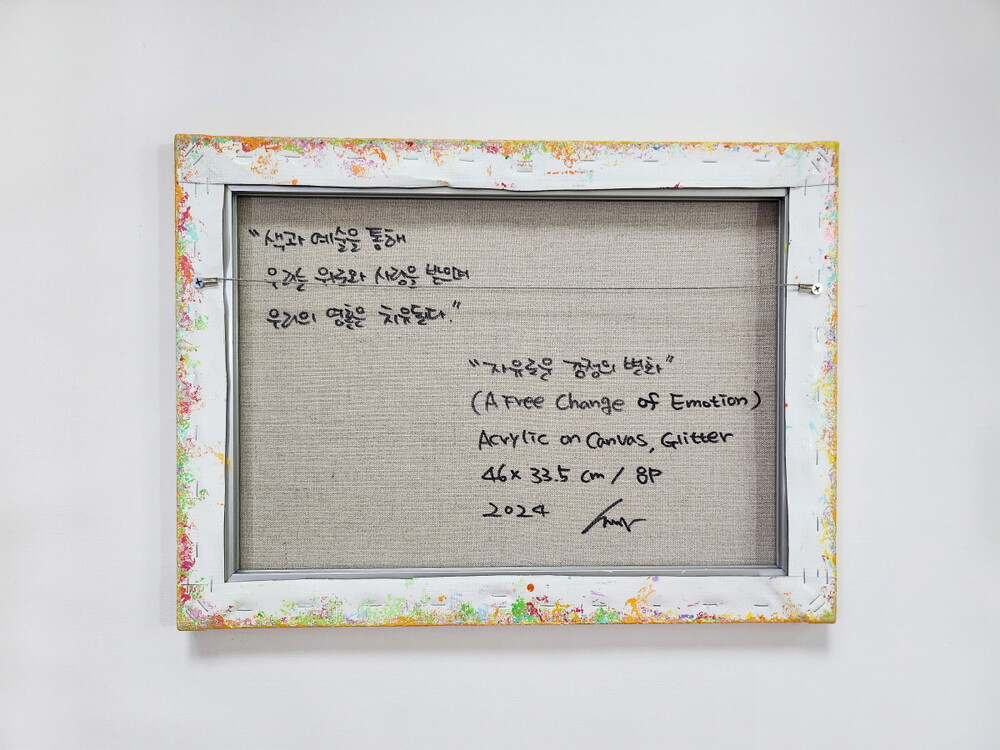 "색과 예술을 통해
우리는 위로와 사랑을 받으며
우리의 영혼은 치유된다."
"자유로운 감정의 변화"
(A Free Change of Emotion)
Acrylic on Canvas, Glitter
46x 33.5 cm / 8P
2024